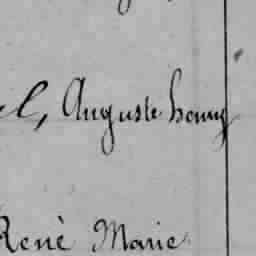 el, Auguste henry
René Marie